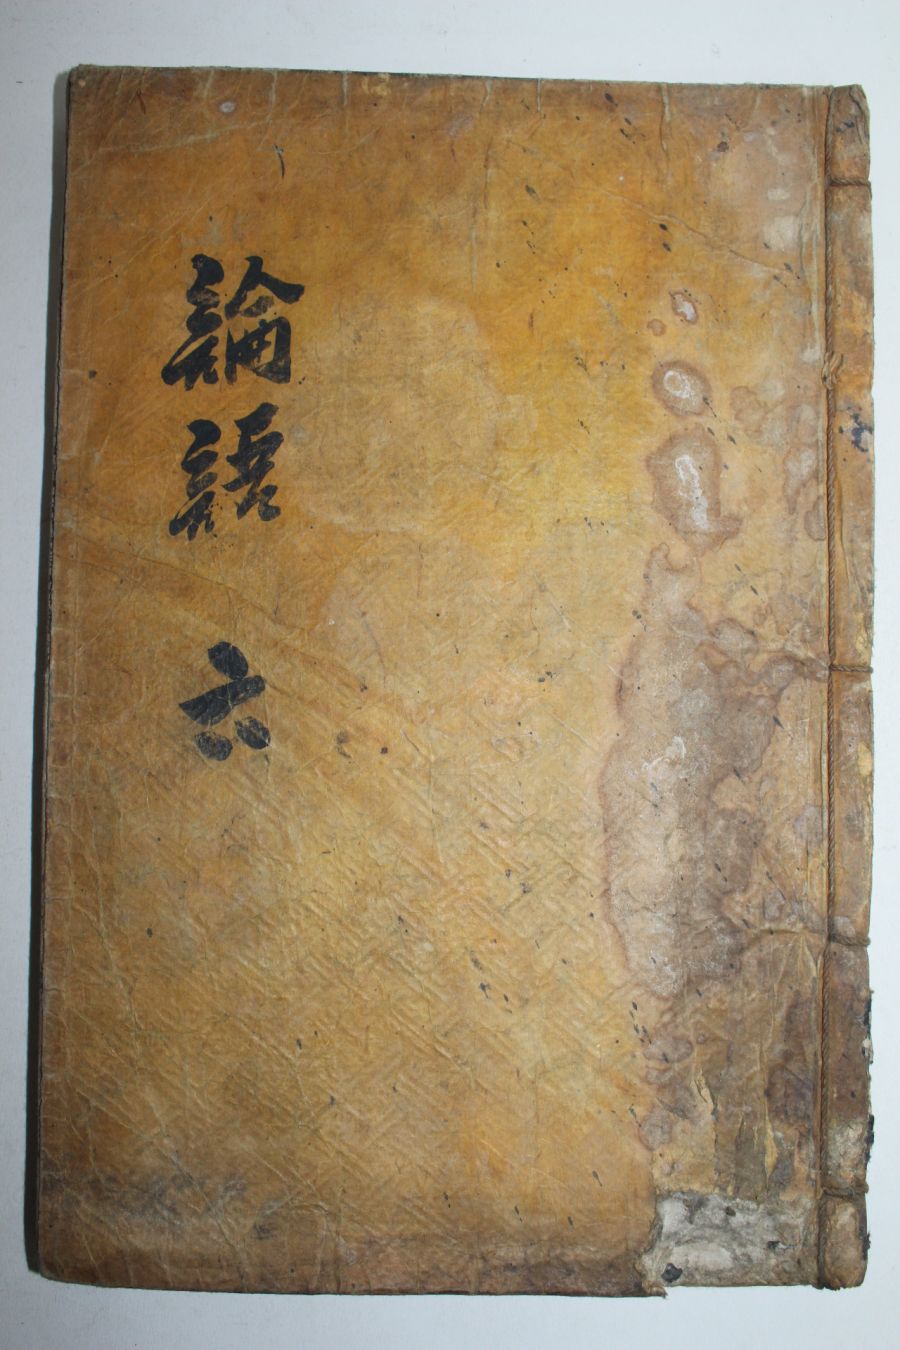 論語 六